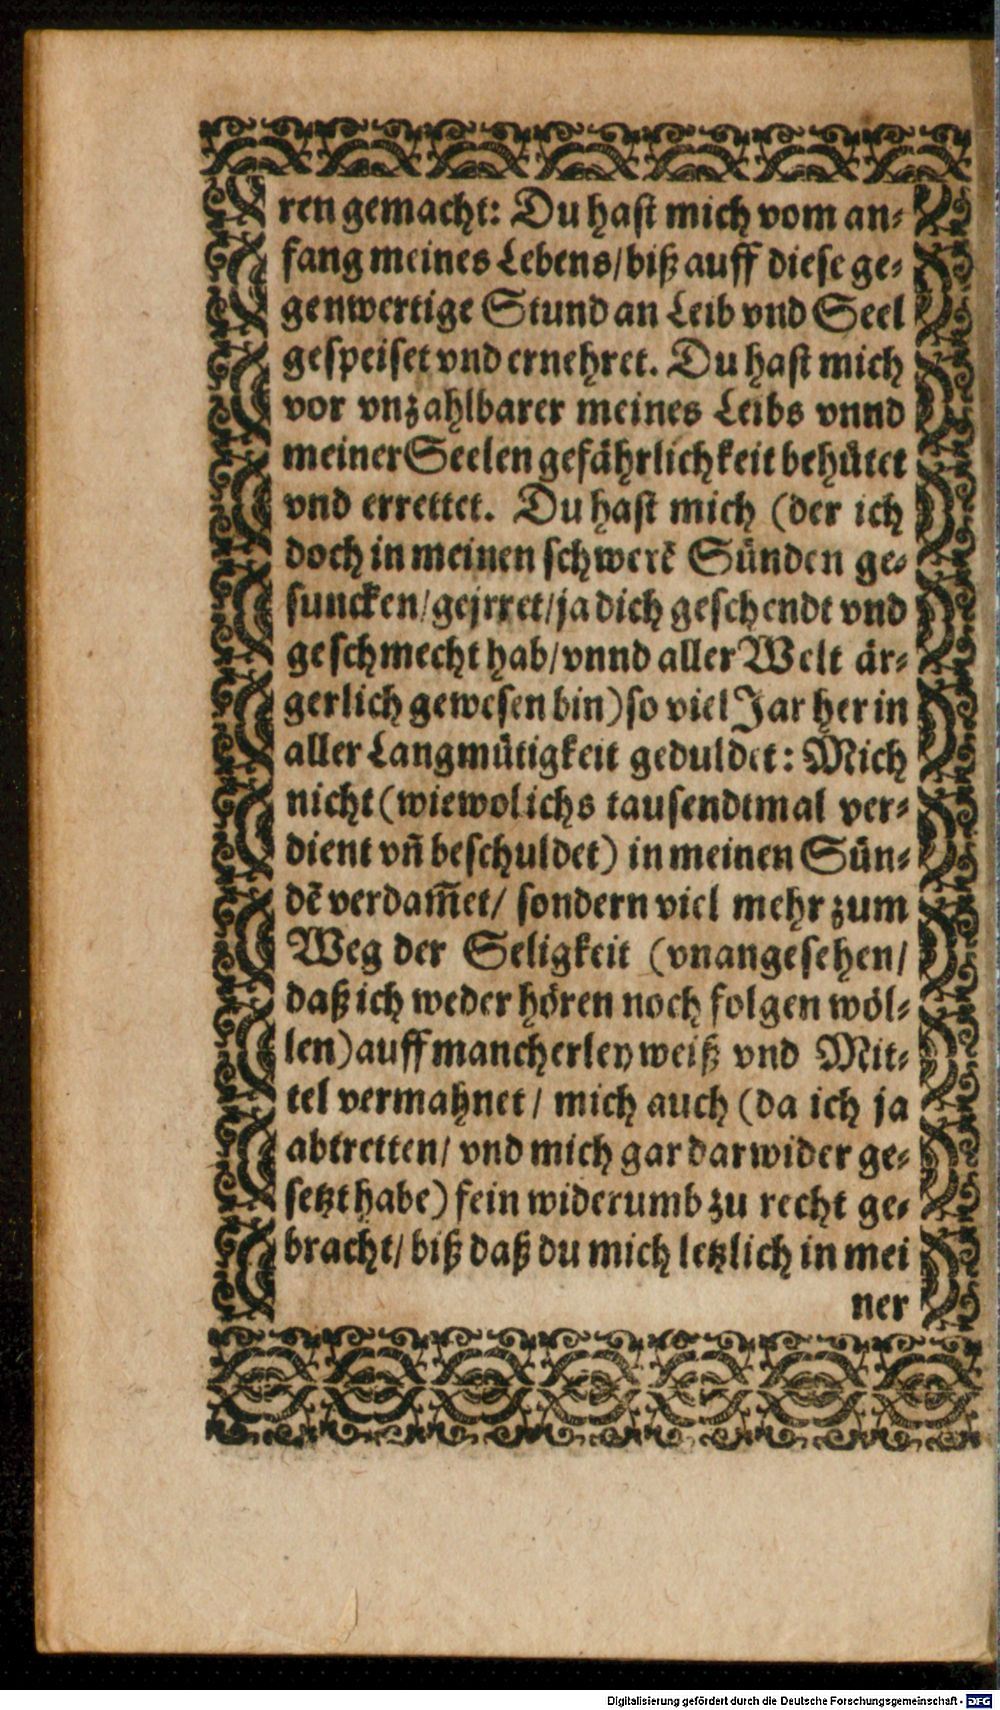 ren gemacht: Du hast mich vom an-
fang meines Lebens/ biß auff diese ge-
genwertige Stund an Leib vnd Seel
gespeiset vnd ernehret. Du hast mich
vor vnzahlbarer meines Leibs vnnd
meiner Seelen gefährlichkeit behütet
vnd errettet. Du hast mich (der ich
doch in meinen schwerẽ Sünden ge-
suncken/ gejrret/ ja dich geschendt vnd
geschmecht hab/ vnnd aller Welt är-
gerlich gewesen bin) so viel Jar her in
aller Langmütigkeit geduldet: Mich
nicht (wiewol ichs tausendtmal ver-
dient vñ beschuldet) in meinen Sün-
dẽ verdam̃et/ sondern viel mehr zum
Weg der Seligkeit (vnangesehen/
daß ich weder hören noch folgen wöl-
len) auff mancherley weiß vnd Mit-
tel vermahnet/ mich auch (da ich ja
abtretten/ vnd mich gar darwider ge-
setzt habe) fein widerumb zu recht ge-
bracht/ biß daß du mich letzlich in mei
ner
Digitalisierung gefördert durch die Deutsche Forschungsgemeinschaft - DFG